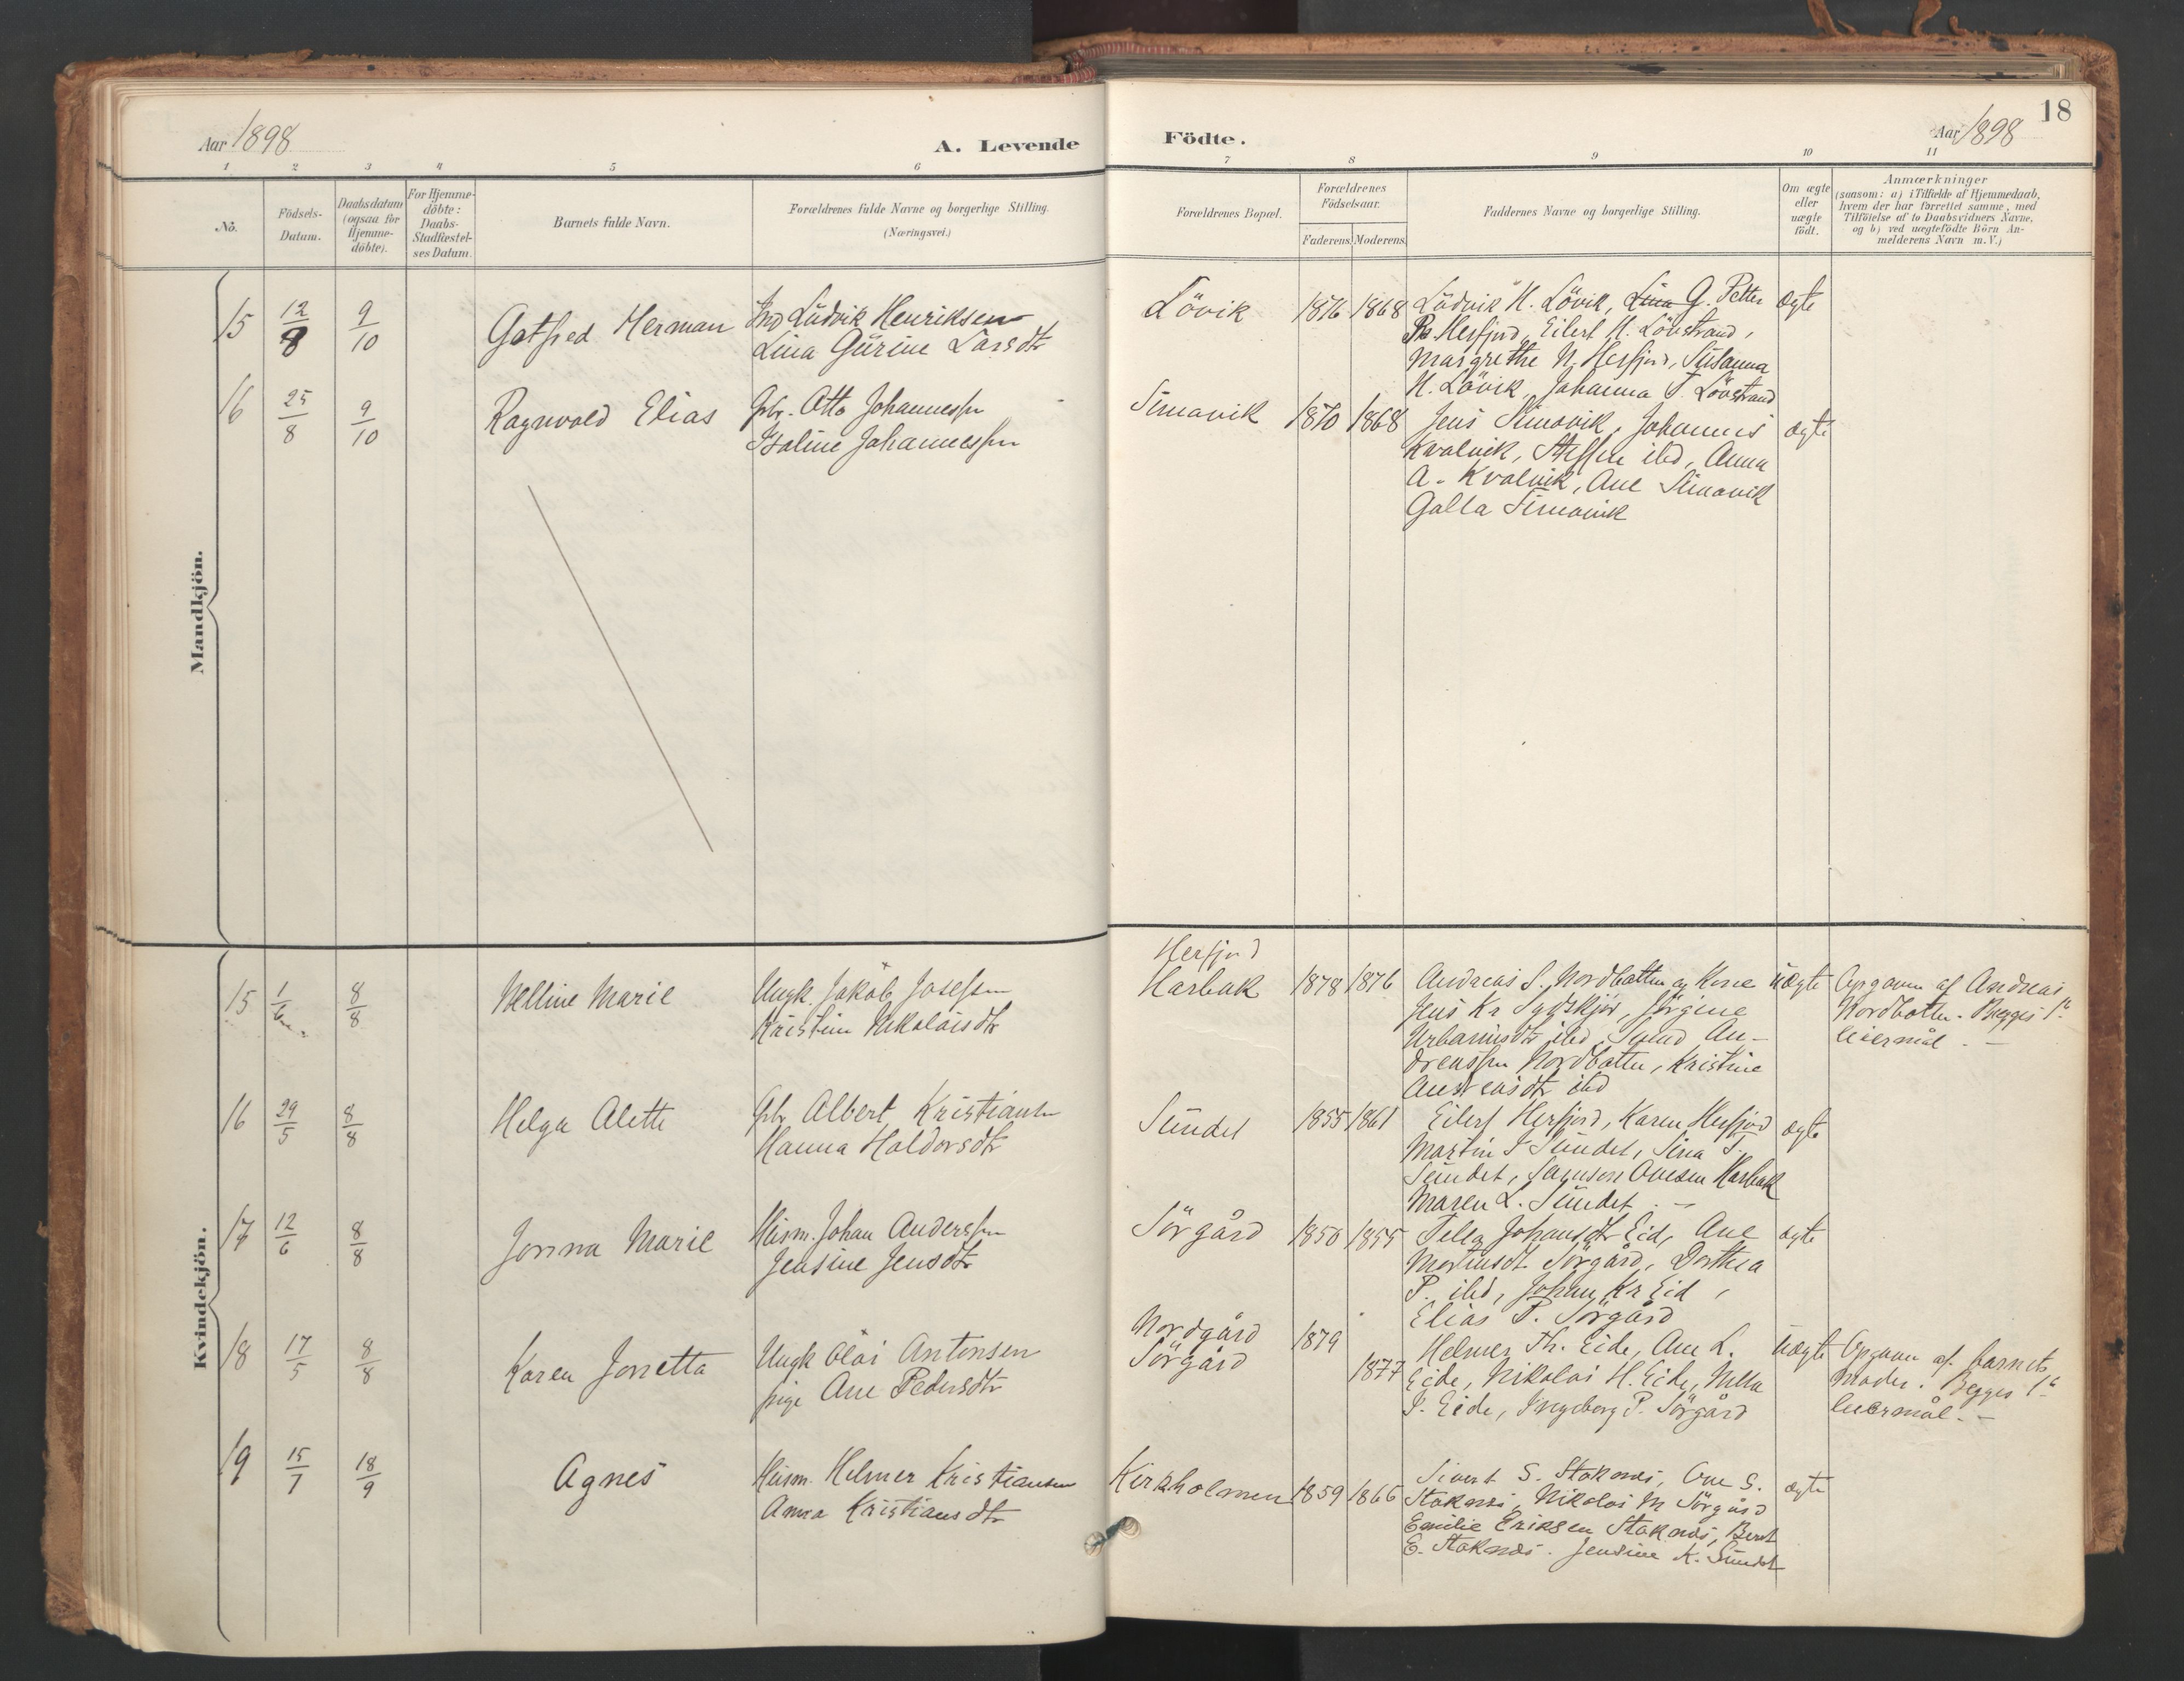 Aar 1898
A. Levende
Födte.
Aar 1898
18
1 2 3 4 5 6 7 8 9 10 11
No.
Födsels-
Datum.
Daabsdatum
(ogsaa for
Hjemme-
döbte).
For Hjemme-
döbte:
Daabs-
Stadfæstel-
ses Datum.
Barnets fulde Navn.
Forældrenes fulde Navne og borgerlige Stilling.
(Næringsvei.)
Forældrenes Bopæl.
Forældrenes
Födselsaar.
Faderens. Moderens.
Faddernes Navne og borgerlige Stilling.
Om ægte
eller
uægte
födt.
Anmærkninger
(saasom: a) i Tilfælde af Hjemmedaab,
hvem der har forrettet samme, med
Tilföielse af to Daabsvidners Navne,
og b) ved uægtefödte Börn An-
melderens Navn m.V.)
Mandkjön.
15 12/8 9/10 Gotfred Herman
Ludvik Henriksen
Lina Gurine Larsdtr
Lövik 1876 1868
Ludvik H. Lövik, Lina G. Petter
Herfjord, Eilert H. Lövstrand,
Margrethe N. Herfjord, Susanna
H. Lövik, Johanna T. Lövstrand
ægte
16 25/8 9/10 Ragnvald Elias
Gbr. Otto Johannessen
Johannessen
Simavik 1870 1868
Jens Simavik, Johannes
Kvalvik, Steffen ibd, Anna
A. Kvalvik, Ane Simavik
Galla Simavik
ægte
Kvindekjön.
15 1/6 8/8 Nelline Marie
Ungk. Jakob Josefsen
Kristine Nikolaisdtr
Herfjord
Harbak 1878 1876
Andreas S. Nordbotten og Kone
Jens Kr
Urbanusdtr ibd, An-
dreassen Nordbotten, Kristine
Andreasdtr ibd
uægte
Opgaven af Andreas
Nordbotten. Begges 1ste
leiermål. —
16 29/5 8/8 Helga Alette
Gbr Albert Kristiansen
Hanna Haldorsdtr
Sundet 1855 1861
Eilert Herfjord, Karen Herfjord
Martin J Sundet, Sina T.
Sundet, Ovesen Harbak
Maren L. Sundet. —
ægte
17 12/6 8/8 Jonna Marie
Husm. Johan Anderssen
Jensine Jensdtr
Sörgård 1850 1855
Johansdtr Eid, Ane
Martinusdt Sörgård, Dorthea
P. ibd, Johan Kr Eid,
Elias P. Sörgård
ægte
18 17/5 8/8 Karen Jonetta
Ungk Olai Antonsen
pige Ane Pedersdtr
Nordgård 1879
Sörgård 1877
Helmer Th. Eide, Ane L.
Eide, Nikolai H. Eide,
J. Eide, Ingeborg P. Sörgård
uægte
Opgaven af barnets
moder. Begges 1ste
leiermål. —
19 15/7 18/9 Agnes
Husm. Helmer Kristiansen
Anna Kristiansdtr
Kirkholmen 1859 1866
Sivert S. Stoknes, Ane S.
Stoknes, Nikolai M Sörgård
Emilie Eriksen Stoknes, Bernt
E. Stoknes. Jensine K. Sundet
ægte